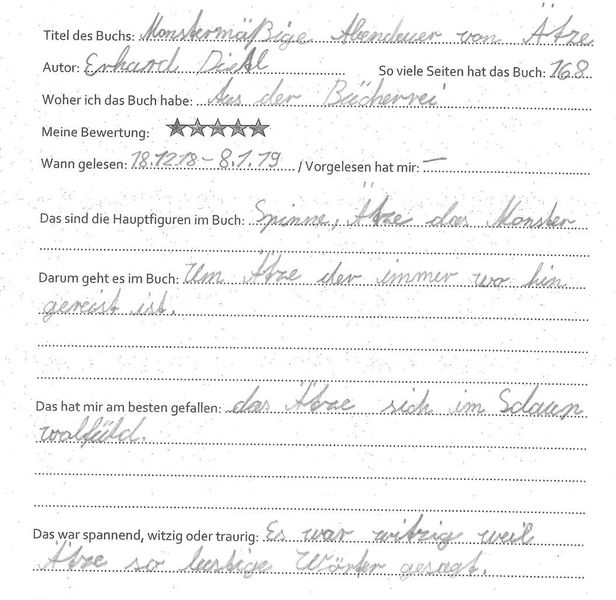 Titel des Buchs: Monstermäßige Abendeuer von Ätze
Autor: Erhard Dietl So viele Seiten hat das Buch: 168
Woher ich das Buch habe: Aus der Bücherrei
Meine Bewertung:
Wann gelesen: 18.12.18 – 8.1.19 / Vorgelesen hat mir: —
Das sind die Hauptfiguren im Buch: Spinne, Ätze das Monster
Darum geht es im Buch: Um Ätze der immer wo hin
gereist ist.
Das hat mir am besten gefallen: das Ätze sich im
walfüld.
Das war spannend, witzig oder traurig: Es war witzig weil
Ätze so lustige Wörter gesagt.